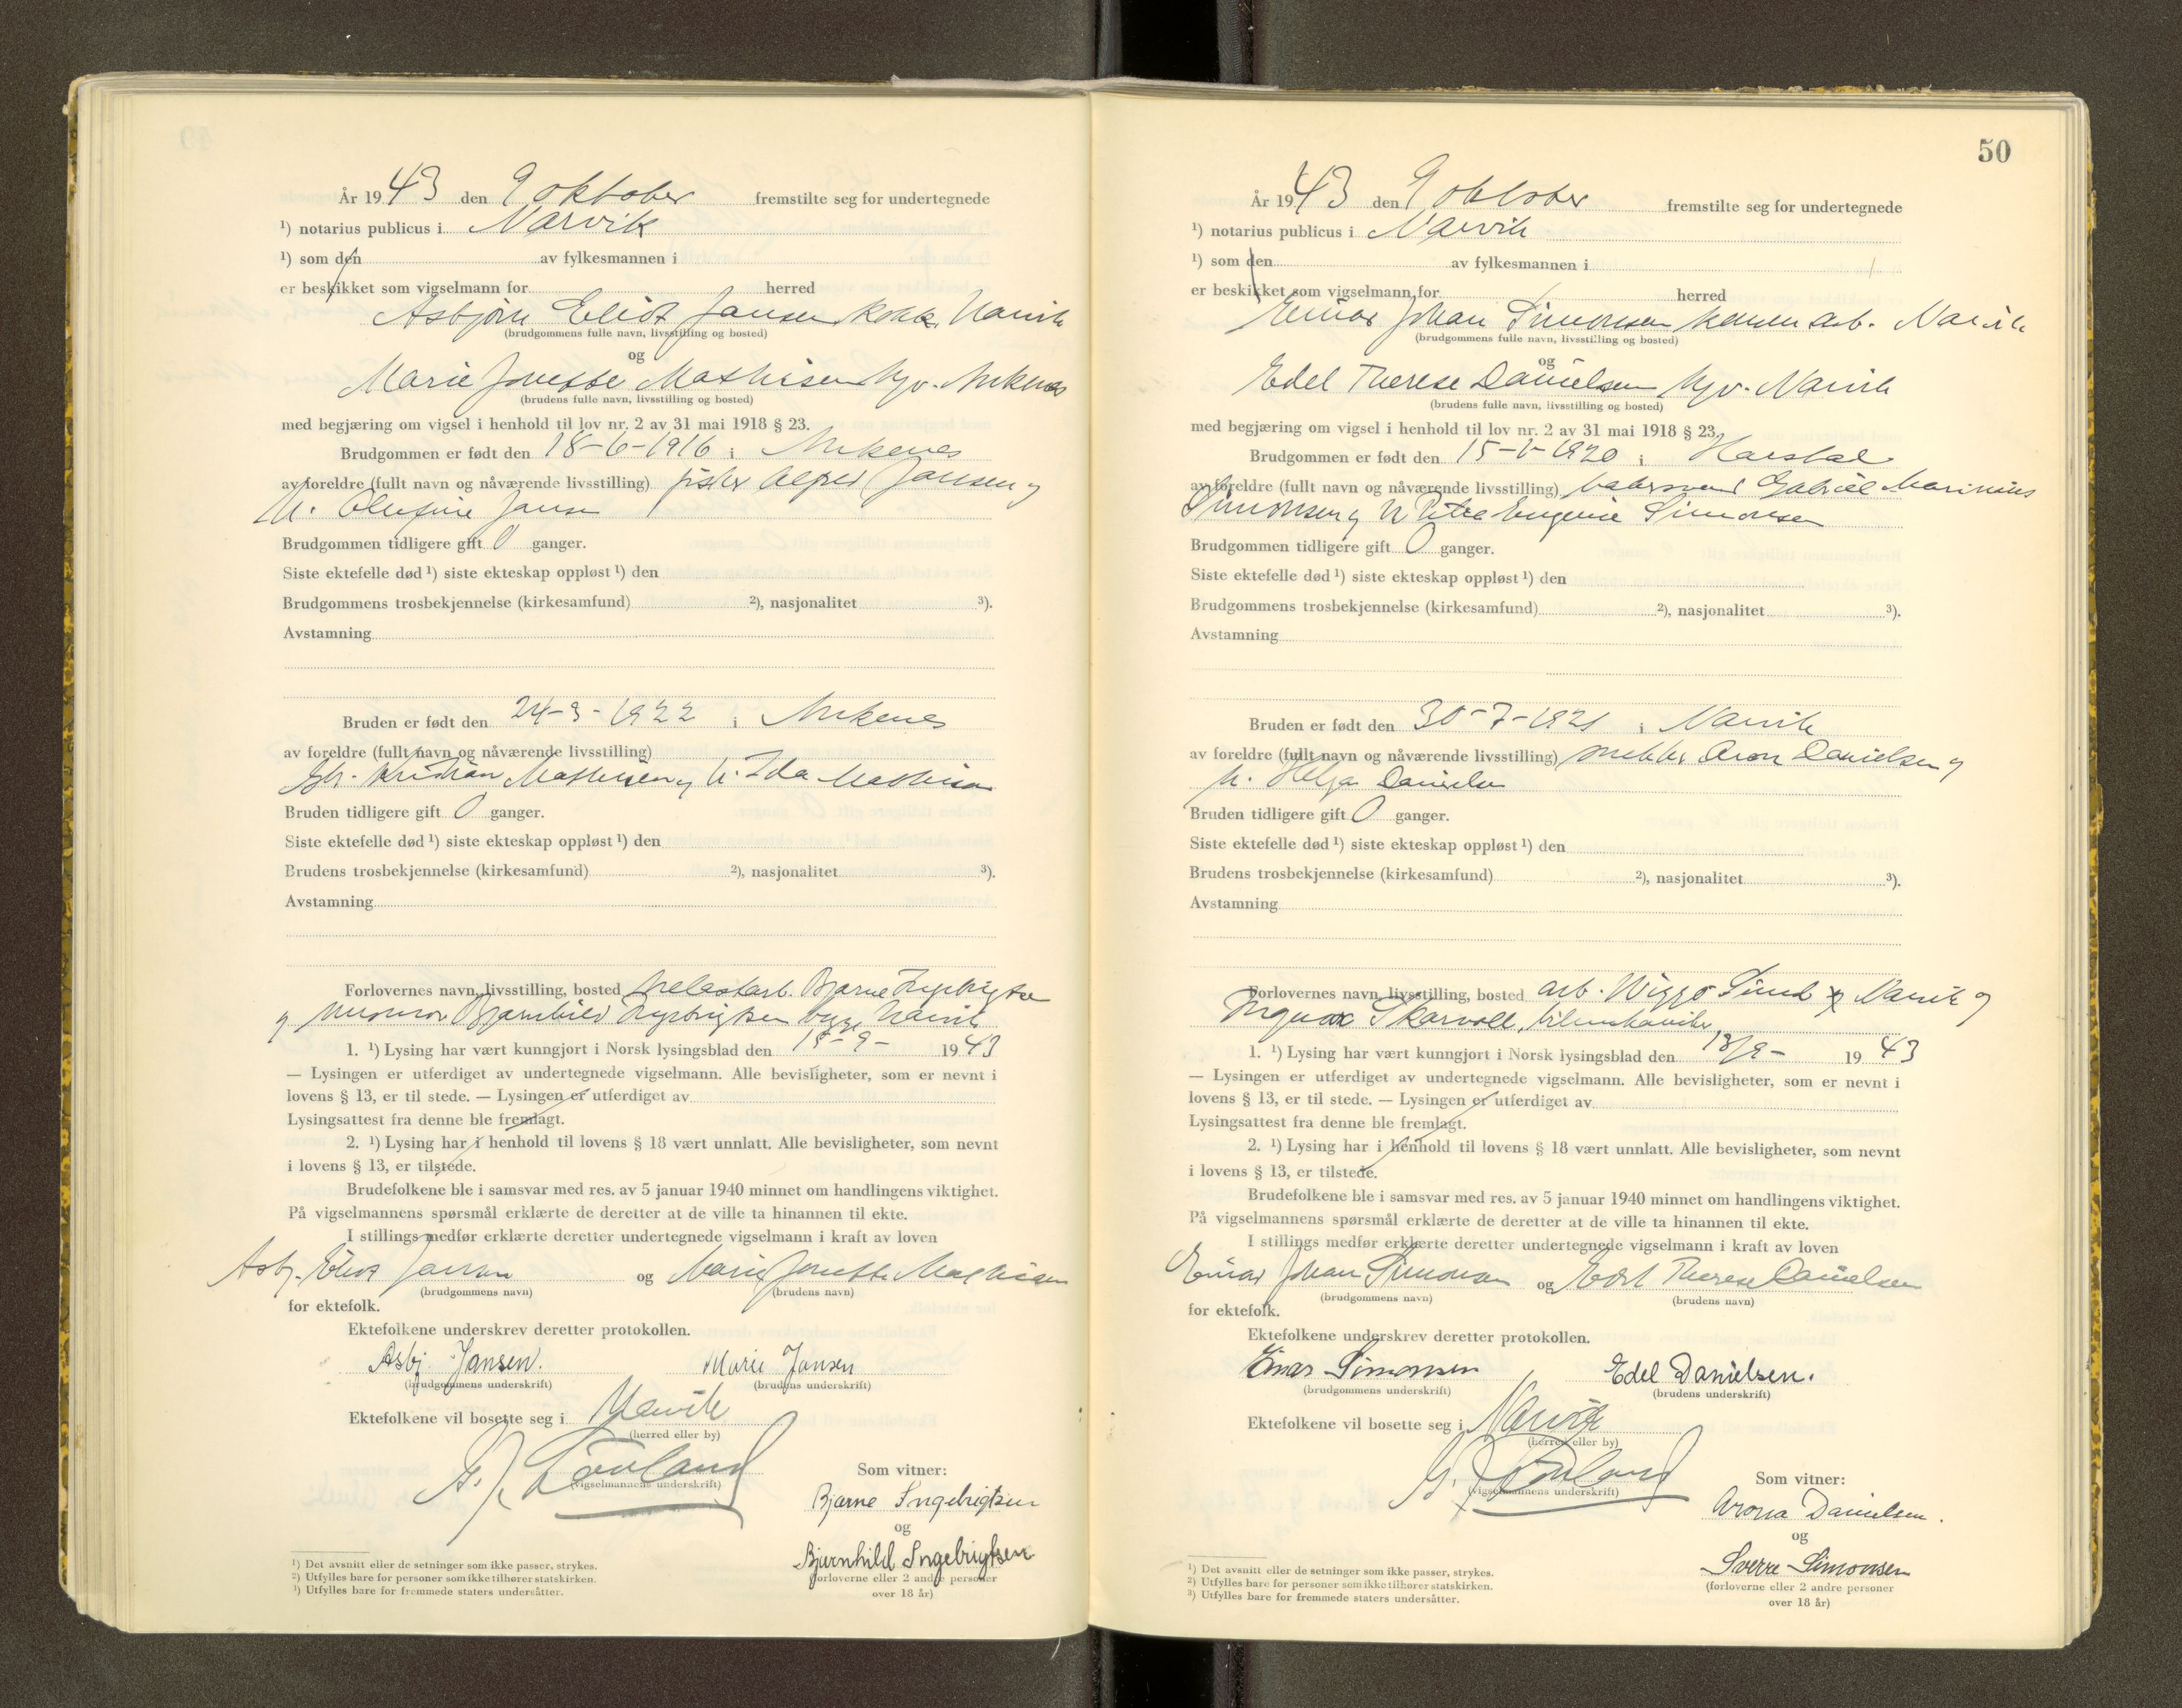 År 1943 den 9 oktober fremstilte seg for undertegnede
¹) notarius publicus i Narvik
¹) som den av fylkesmannen i
er beskikket som vigselmann for herred
Asbjørn Eliot Jansen kokk, Narvik
(brudgommens fulle navn, livsstilling og bosted)
og
Marie Jonette Mathisen hjv. Ankenes
(brudens fulle navn, livsstilling og bosted)
med begjæring om vigsel i henhold til lov nr. 2 av 31 mai 1918 § 23.
Brudgommen er født den 18-6-1916 i Ankenes
av foreldre (fullt navn og nåværende livsstilling) fisker Alfred Jansen og
h. Olufine Jansen
Brudgommen tidligere gift 0 ganger.
Siste ektefelle død ¹) siste ekteskap oppløst ¹) den
Brudgommens trosbekjennelse (kirkesamfund) ²), nasjonalitet ³).
Avstamning
Bruden er født den 24-3-1922 i Ankenes
av foreldre (fullt navn og nåværende livsstilling)
Kristian Mathisen og h. Ida Mathisen
Bruden tidligere gift 0 ganger.
Siste ektefelle død ¹) siste ekteskap oppløst ¹) den
Brudens trosbekjennelse (kirkesamfund) ²), nasjonalitet ³).
Avstamning
Forlovernes navn, livsstilling, bosted Bjarne Ingebrigtsen
og Bjarnhild Ingebrigtsen begge Narvik
1. ¹) Lysing har vært kunngjort i Norsk lysingsblad den 18-9- 1943
— Lysingen er utferdiget av undertegnede vigselmann. Alle bevisligheter, som er nevnt i
lovens § 13, er til stede. — Lysingen er utferdiget av
Lysingsattest fra denne ble fremlagt.
2. ¹) Lysing har i henhold til lovens § 18 vært unnlatt. Alle bevisligheter, som nevnt
i lovens § 13, er tilstede.
Brudefolkene ble i samsvar med res. av 5 januar 1940 minnet om handlingens viktighet.
På vigselmannens spørsmål erklærte de deretter at de ville ta hinannen til ekte.
I stillings medfør erklærte deretter undertegnede vigselmann i kraft av loven
Asbj. Eliot Jansen og Marie Jonette Mathisen
(brudgommens navn) (brudens navn)
for ektefolk.
Ektefolkene underskrev deretter protokollen.
Asbj. Jansen. Marie Jansen
(brudgommens underskrift) (brudens underskrift)
Ektefolkene vil bosette seg i Narvik
(herred eller by)
(vigselmannens underskrift)
Som vitner:
Bjarne Ingebrigtsen
og
Bjarnhild Ingebrigtsen
(forloverne eller 2 andre personer
over 18 år)
¹) Det avsnitt eller de setninger som ikke passer, strykes.
²) Utfylles bare for personer som ikke tilhører statskirken.
³) Utfylles bare for fremmede staters undersåtter.
50
År 1943 den 9 oktober fremstilte seg for undertegnede
¹) notarius publicus i Narvik
¹) som den av fylkesmannen i
er beskikket som vigselmann for herred
Einar Johan Simonsen arb. Narvik
(brudgommens fulle navn, livsstilling og bosted)
og
Edel Therese Danielsen hjv. Narvik
(brudens fulle navn, livsstilling og bosted)
med begjæring om vigsel i henhold til lov nr. 2 av 31 mai 1918 § 23.
Brudgommen er født den 15-1-1920 i Harstad
av foreldre (fullt navn og nåværende livsstilling) Gabriel Marinius
Simonsen og h Petra Eugenie Simonsen
Brudgommen tidligere gift 0 ganger.
Siste ektefelle død ¹) siste ekteskap oppløst ¹) den
Brudgommens trosbekjennelse (kirkesamfund) ²), nasjonalitet ³).
Avstamning
Bruden er født den 30-7-1921 i Narvik
av foreldre (fullt navn og nåværende livsstilling) Aron Danielsen og
h. Helga Danielsen
Bruden tidligere gift 0 ganger.
Siste ektefelle død ¹) siste ekteskap oppløst ¹) den
Brudens trosbekjennelse (kirkesamfund) ²), nasjonalitet ³).
Avstamning
Forlovernes navn, livsstilling, bosted arb. Wiggo Sund Narvik og
Skarvoll,
1. ¹) Lysing har vært kunngjort i Norsk lysingsblad den 18/9- 1943
— Lysingen er utferdiget av undertegnede vigselmann. Alle bevisligheter, som er nevnt i
lovens § 13, er til stede. — Lysingen er utferdiget av
Lysingsattest fra denne ble fremlagt.
2. ¹) Lysing har i henhold til lovens § 18 vært unnlatt. Alle bevisligheter, som nevnt
i lovens § 13, er tilstede.
Brudefolkene ble i samsvar med res. av 5 januar 1940 minnet om handlingens viktighet.
På vigselmannens spørsmål erklærte de deretter at de ville ta hinannen til ekte.
I stillings medfør erklærte deretter undertegnede vigselmann i kraft av loven
Einar Johan Simonsen og Edel Therese Danielsen
(brudgommens navn) (brudens navn)
for ektefolk.
Ektefolkene underskrev deretter protokollen.
Einar Simonsen Edel Danielsen.
(brudgommens underskrift) (brudens underskrift)
Ektefolkene vil bosette seg i Narvik
(herred eller by)
(vigselmannens underskrift)
Som vitner:
Arona Danielsen.
og
Sverre Simonsen
(forloverne eller 2 andre personer
over 18 år)
¹) Det avsnitt eller de setninger som ikke passer, strykes.
²) Utfylles bare for personer som ikke tilhører statskirken.
³) Utfylles bare for fremmede staters undersåtter.